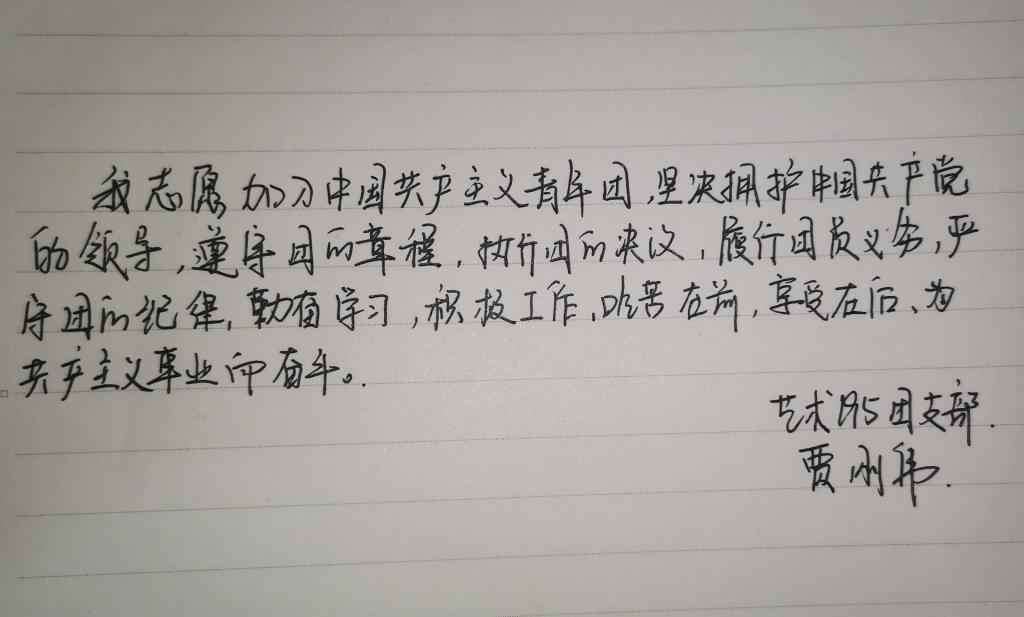 我志愿加入中国共产主义青年团,坚决拥护中国共产党
的领导,遵守团的章程,执行团的决议,履行团员义务,严
守团的纪律,勤奋学习,积极工作,吃苦在前,享受在后、为
共产主义事业而奋斗。
艺术195团支部.
贾刚伟.